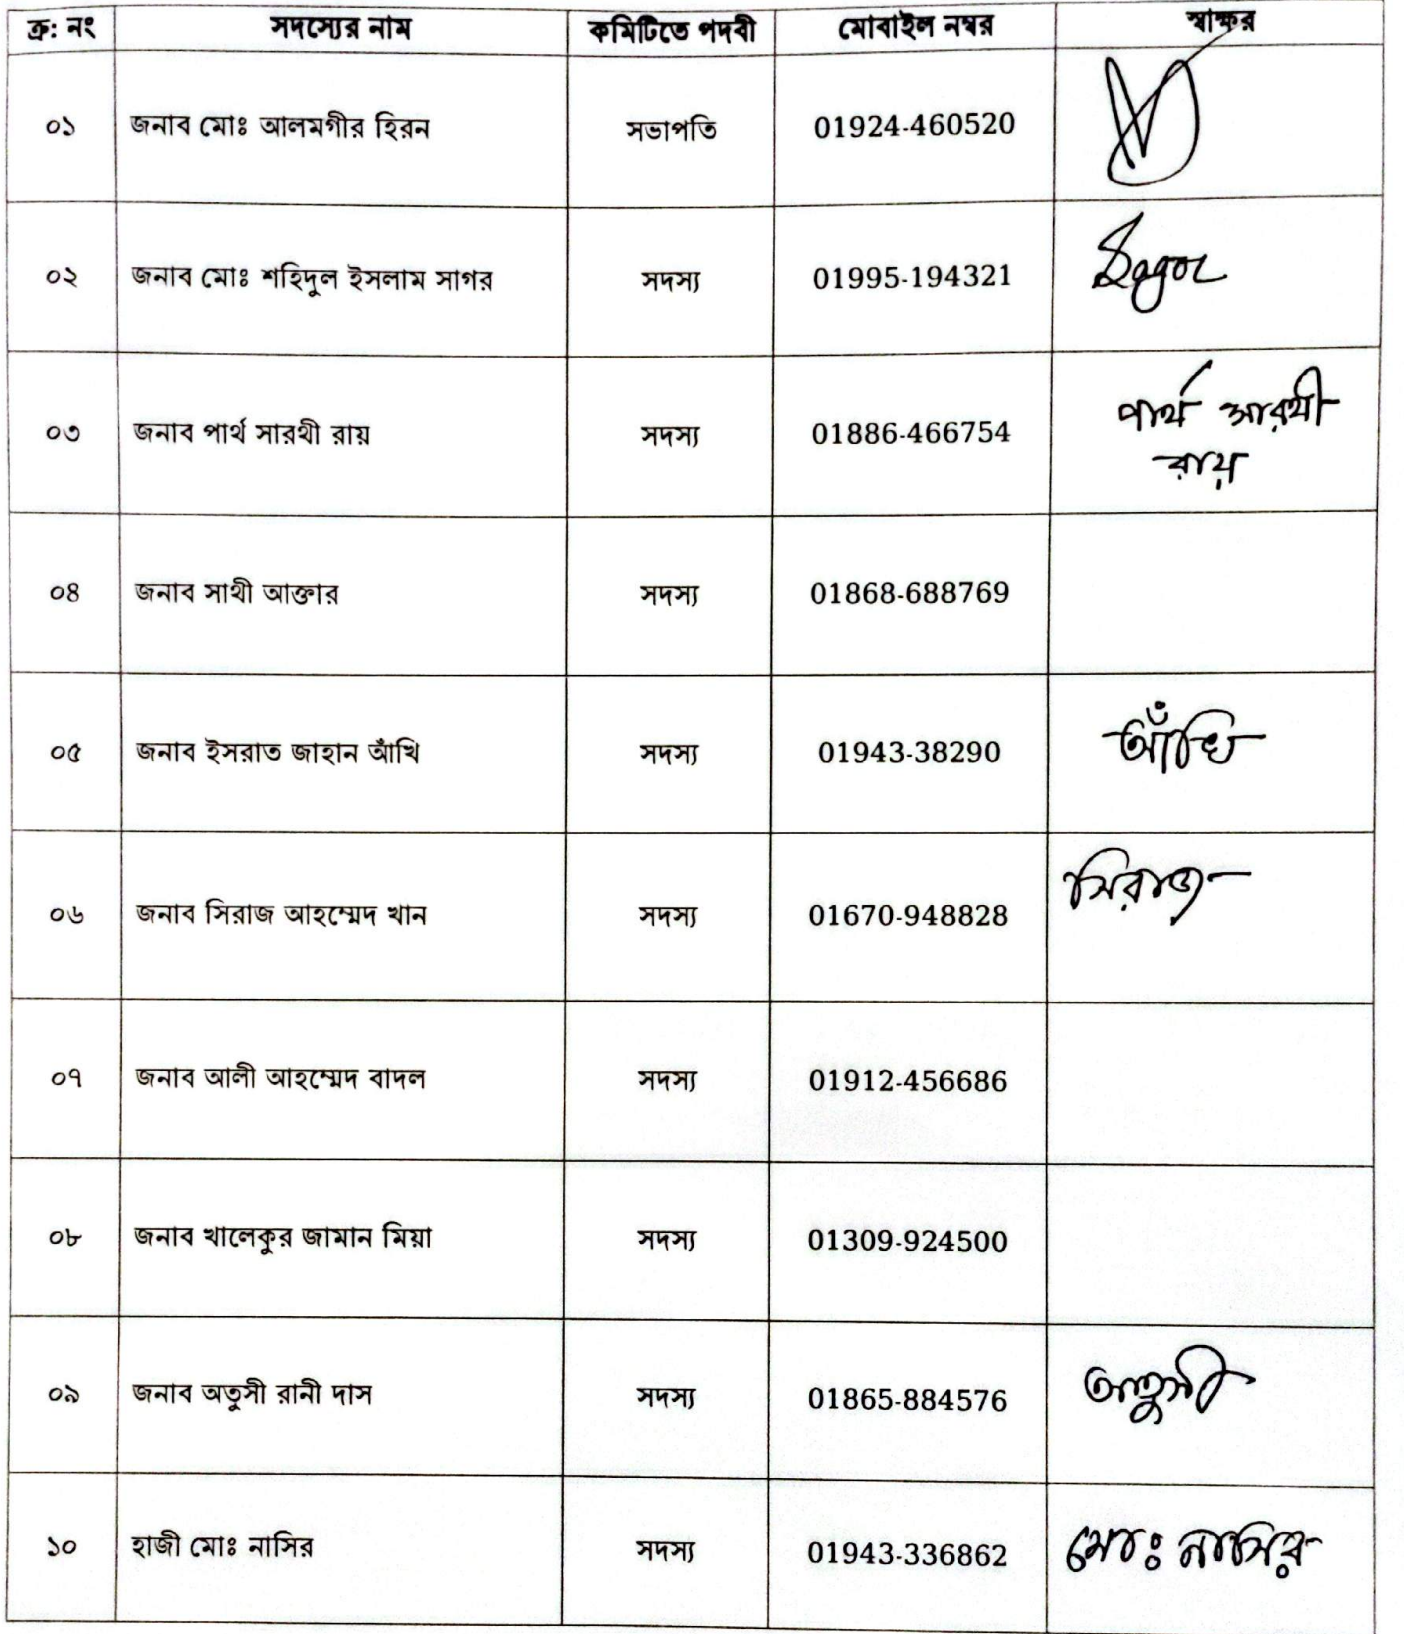 ক্র: নং সদস্যের নাম কমিটিতে পদবী মোবাইল নম্বর স্বাক্ষর
০১ জনাব মোঃ আলমগীর হিরন সভাপতি 01924-460520
০২ জনাব মোঃ শহিদুল ইসলাম সাগর সদস্য 01995-194321 Sagor
০৩ জনাব পার্থ সারথী রায় সদস্য 01886-466754 পার্থ সারথী
রায়
০৪ জনাব সাথী আক্তার সদস্য 01868-688769
০৫ জনাব ইসরাত জাহান আঁখি সদস্য 01943-38290 আঁখি
০৬ জনাব সিরাজ আহম্মেদ খান সদস্য 01670-948828 সিরাজ
০৭ জনাব আলী আহম্মেদ বাদল সদস্য 01912-456686
০৮ জনাব খালেকুর জামান মিয়া সদস্য 01309-924500
০৯ জনাব অতুসী রানী দাস সদস্য 01865-884576 অতুসী
১০ হাজী মোঃ নাসির সদস্য 01943-336862 মোঃ নাসির